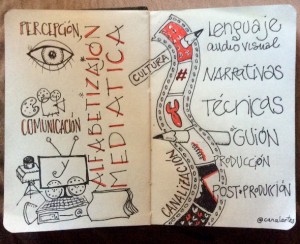 PERCEPCIÓN,
COMUNICACIÓN
y
ALFABETIZAJÓN
MEDIATICA
CULTURA
#
CANALIZANDO
Lenguaje
audiovisual
NARRATIVAS
TÉCNICAS
GUIÓN
PRODUCCIÓN
POST-PRODUCCIÓN